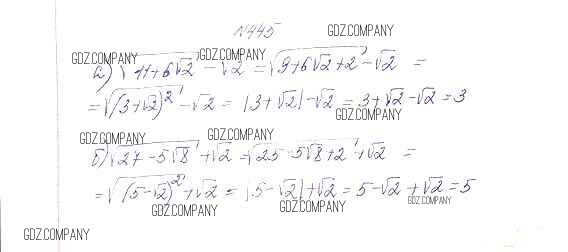 N445
GDZ.COMPANY
GDZ.COMPANY GDZ.COMPANY
а) √11+6√2 - √2 = √9+6√2+2 - √2 =
= √(3+√2)² - √2 = |3+√2| - √2 = 3+√2 - √2 = 3
GDZ.COMPANY
GDZ.COMPANY GDZ.COMPANY
б) √27-5√8 + √2 = √25-5√8+2 + √2 =
= √(5-√2)² + √2 = |5-√2| + √2 = 5-√2 + √2 = 5
GDZ.COMPANY GDZ.COMPANY GDZ.COMPANY
GDZ.COMPANY